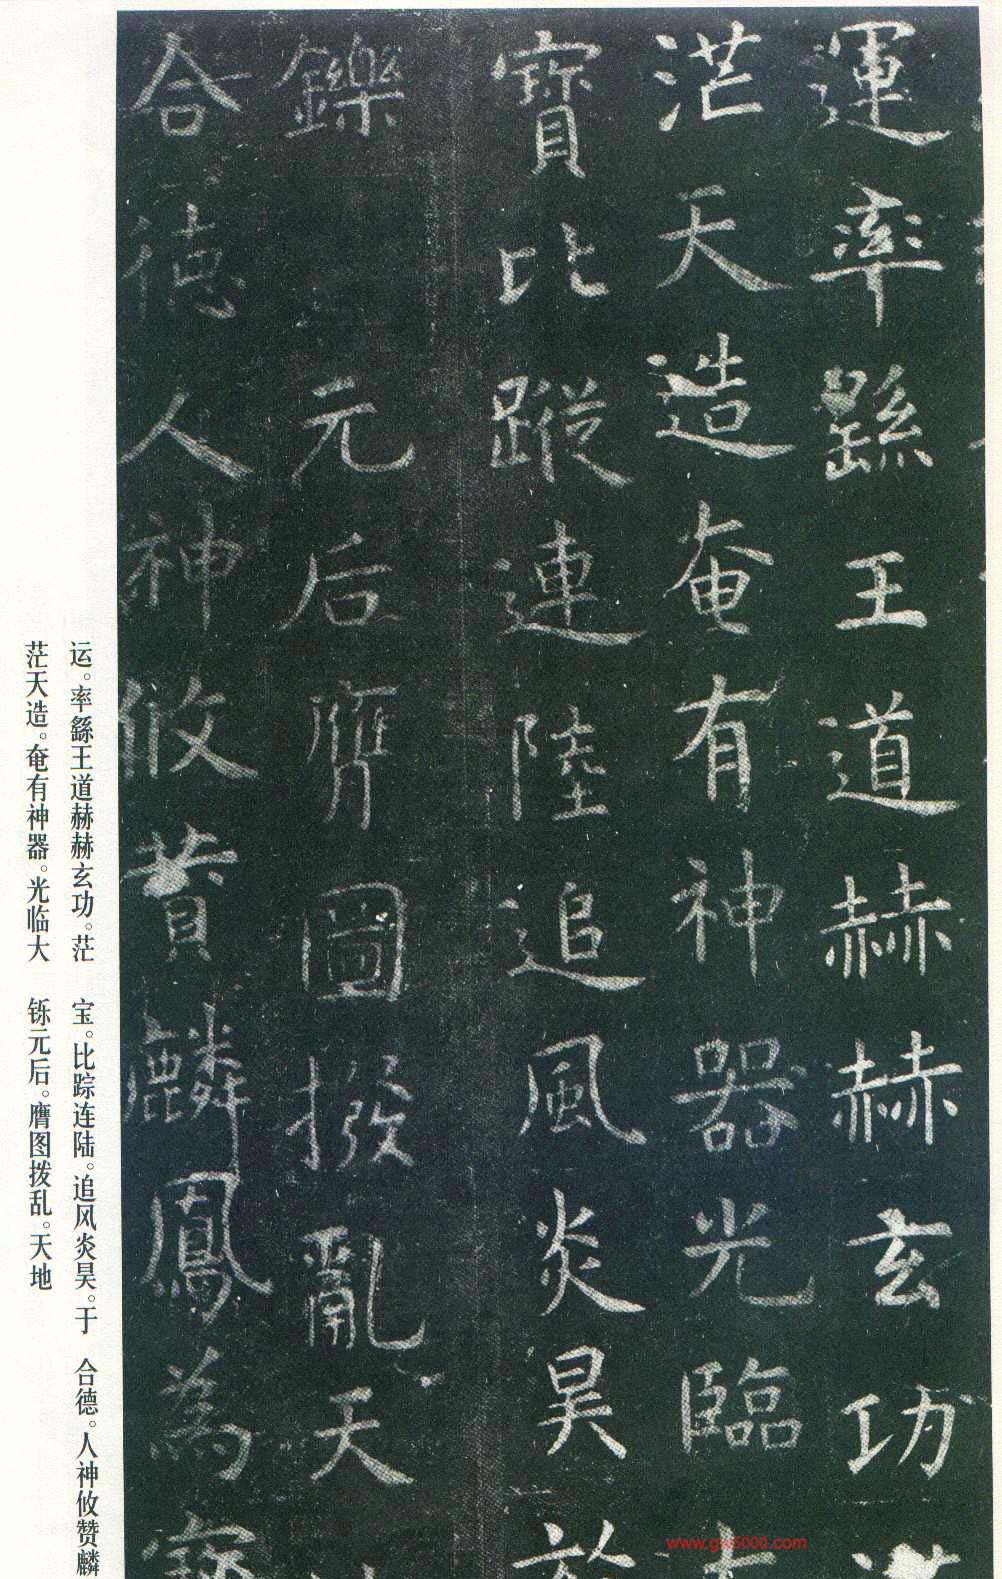 運率繇王道赫赫玄功
茫天造奄有神器光臨
寶比蹤連陸追風炎昊於
鑠元后膺圖撥亂天
合德人神攸贊麟鳳為寶
运。率繇王道赫赫玄功。茫
茫天造。奄有神器。光临大
宝。比踪连陆。追风炎昊。于
铄元后。膺图拨乱。天地
合德。人神攸赞麟
www.gw5000.com